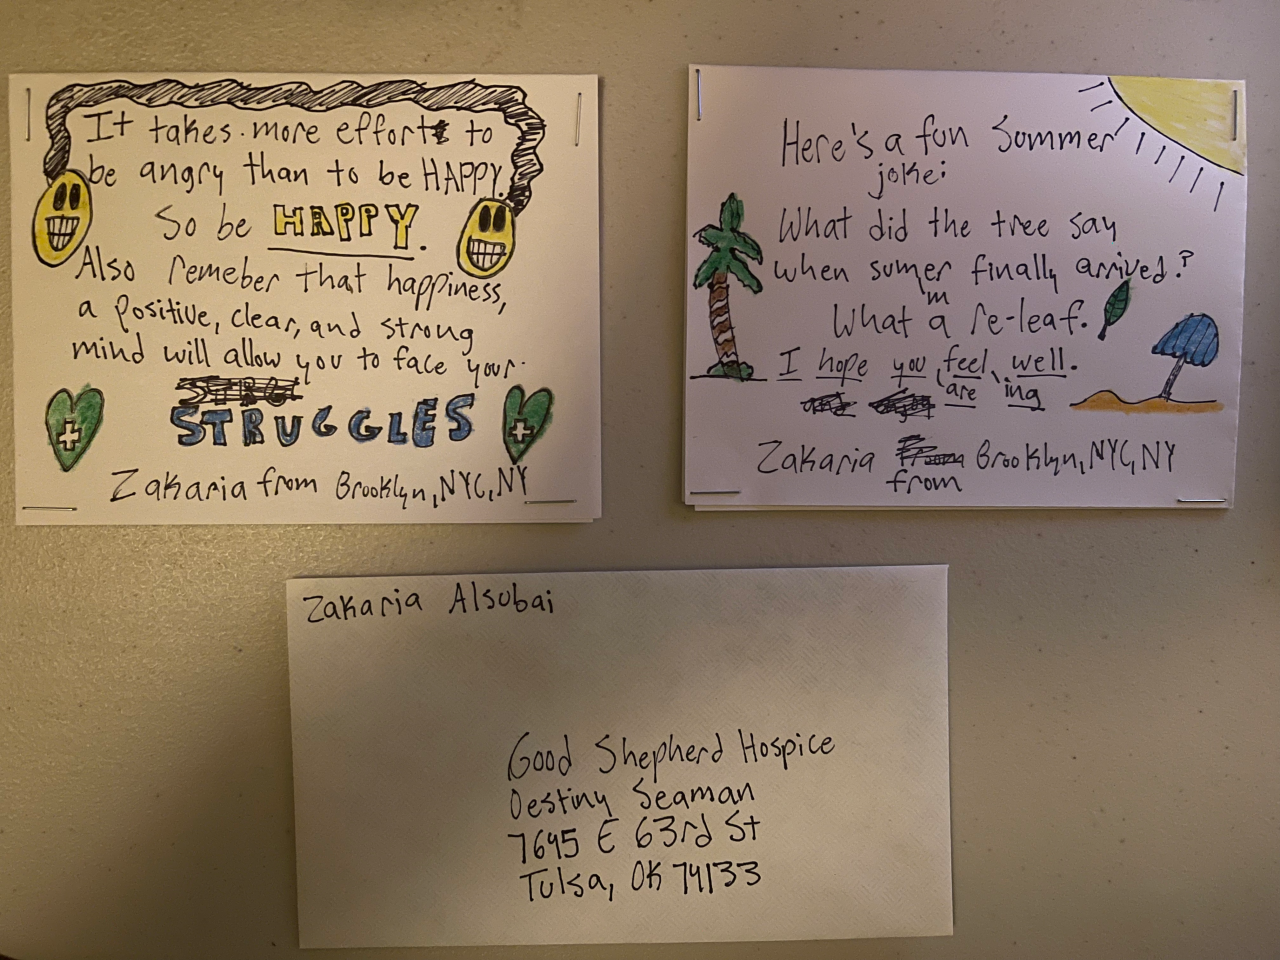 It takes more effort to
be angry than to be HAPPY.
So be HAPPY.
Also remeber that happiness,
a positive, clear, and strong
mind will allow you to face your
STRUGGLES
Zakaria from Brooklyn, NYC, NY
Here's a fun Summer
joke:
What did the tree say
when sumer finally arrived?
m
What a re-leaf.
I hope you feel well.
are ing
Zakaria Brooklyn, NYC, NY
from
Zakaria Alsubai
Good Shepherd Hospice
Destiny Seaman
7645 E 63rd St
Tulsa, OK 74133